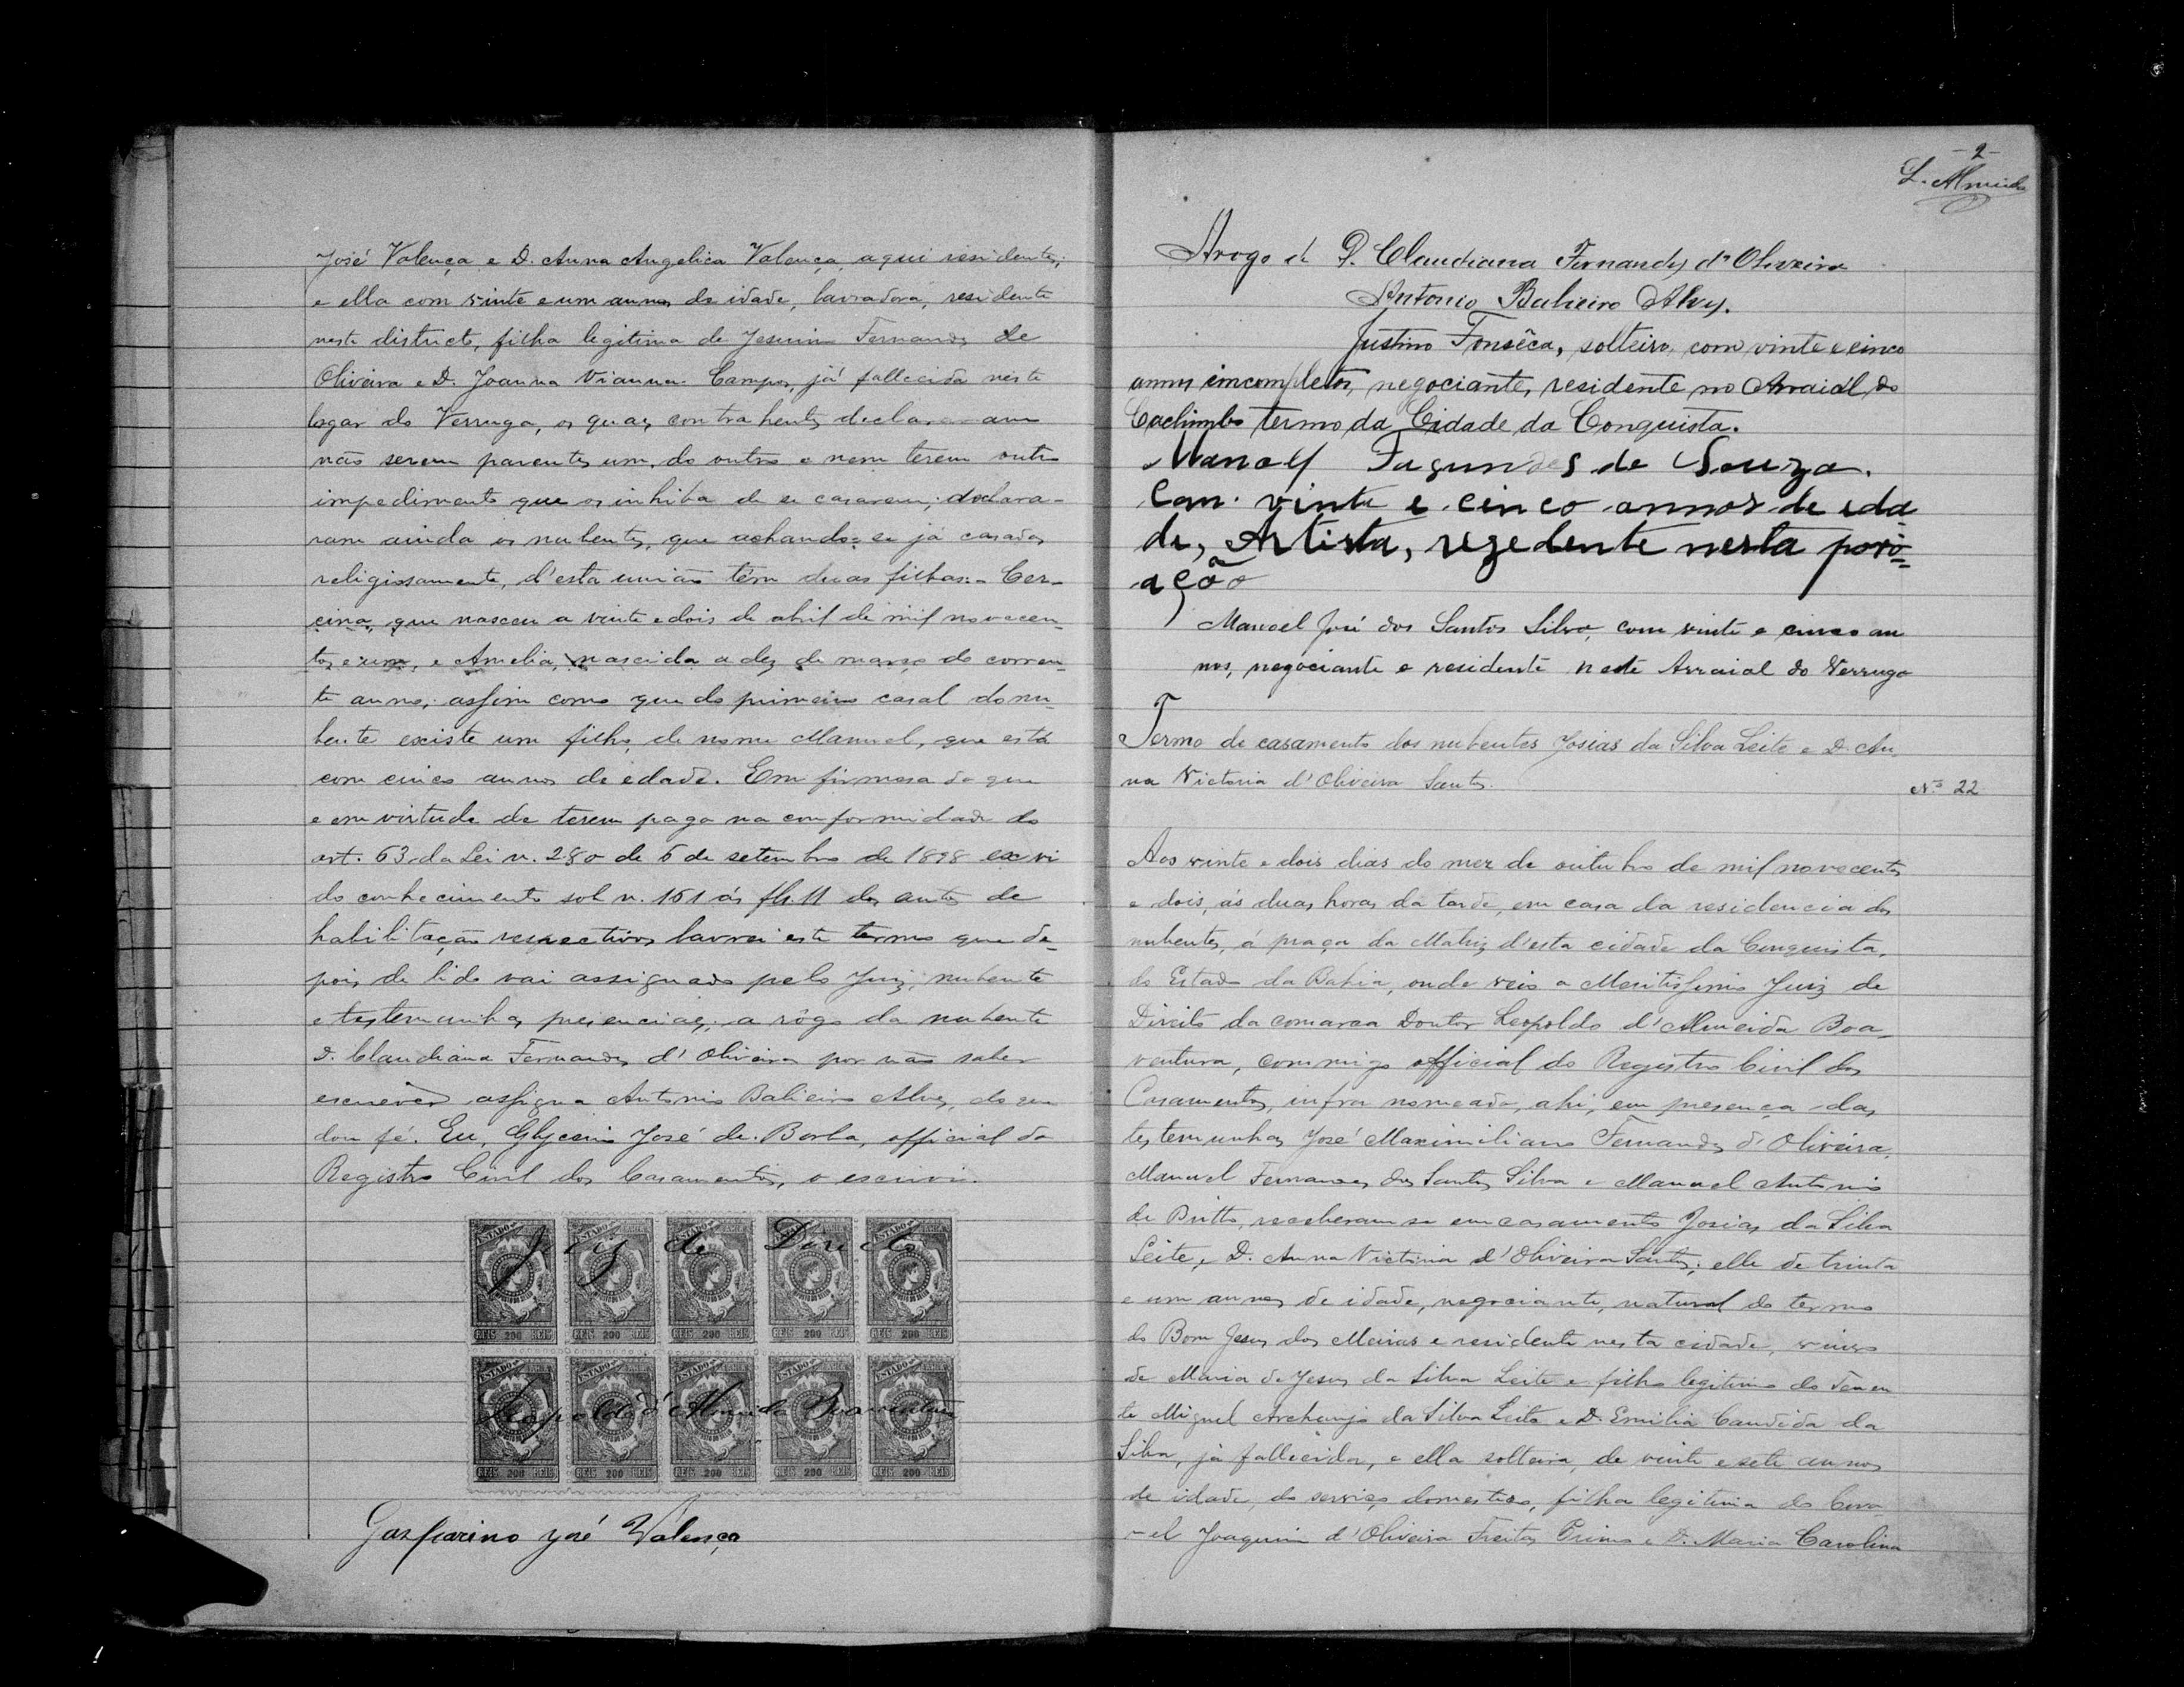 José Valença e D. Anna Angelica Valença, aqui residentes;
e ella com vinte e um annos de idade, lavradora, residente
neste districto, filha legitima de Jesuino Fernandes de
Oliveira e D. Joanna Vianna Campos, já fallecida neste
logar do Verruga, os quaes contrahentes declararam
não serem parentes um do outro e nem terem outro
impedimento que os inhiba de se casarem; declara-
ram ainda os nubentes, que achando-se já casados
religiosamente, d'esta união têm duas filhas:- Cer-
cina, que nasceu a vinte e dois de abril de mil novecen-
tos e um, e Amelia, nascida a dez de março do corren-
te anno; assim como que do primeiro casal do nu-
bente existe um filho, de nome Manuel, que está
com cinco annos de edade. Em firmesa do que
e em virtude de terem pago na conformidade do
art. 63 da Lei n. 280 de 6 de setembro de 1898 ex vi
do conhecimento sob n. 161 ás fls. 11 dos autos de
habilitação respectivos lavrei este termo que de-
pois de lido vai assignado pelo Juiz, nubente
e testemunhas presenciaes; a rôgo da nubente
D. Claudiana Fernandes d'Oliveira por não saber
escrever assigna Antonio Balieiro Alves, do que
dou fé. Eu, Glycerio José de Borba, official do
Registro Civil dos Casamentos, o escrevi.
Juiz de Direito
ESTADO REIS 200 REIS
Leopoldo d'Almeida Boaventura
ESTADO REIS 200 REIS
Gasparino José Valença
-2-
L. Almeida
Arogo de D. Claudiana Fernandes d'Oliveira
Antonio Balieiro Alves.
Justino Fonsêca, solteiro, com vinte e cinco
annos imcompletos, negociante, residente no Arraial do
Cachimbo termo da Cidade da Conquista.
Manoel Fagundes de Souza.
Com vinte e cinco annos de eda
de, Artista, rezedente nesta povo=
ação
Manoel José dos Santos Silva, com vinte e cinco an
nos, negociante e residente neste Arraial do Verruga
Termo de casamento dos nubentes Josias da Silva Leite e D. An-
na Victoria d'Oliveira Santos.
Nº 22
Aos vinte e dois dias do mez de outubro de mil novecentos
e dois, ás duas horas da tarde, em casa da residencia dos
nubentes, á praça da Matriz d'esta cidade da Conquista,
do Estado da Bahia, onde veio o Meritissimo Juiz de
Direito da comarca Doutor Leopoldo d'Almeida Boa-
ventura, commigo official do Registro Civil dos
Casamentos, infra nomeado, ahi, em presença das
testemunhas José Maximiliano Fernandes d'Oliveira,
Manuel Fernandes dos Santos Silva e Manuel Antonio
de Britto, receberam-se em casamento Josias da Silva
Leite, e D. Anna Victoria d'Oliveira Santos; elle de trinta
e um annos de idade, negociante, natural do termo
do Bom Jesus dos Meiras e residente nesta cidade, viuvo
de Maria de Jesus da Silva Leite e filho legitimo do Tenen
te Miguel Archanjo da Silva Leite e D. Emilia Candida da
Silva, já fallecida, e ella solteira, de vinte e sete annos
de idade, do serviço domestico, filha legitima do Coro
nel Joaquim d'Oliveira Freitas Primo e D. Maria Carolina